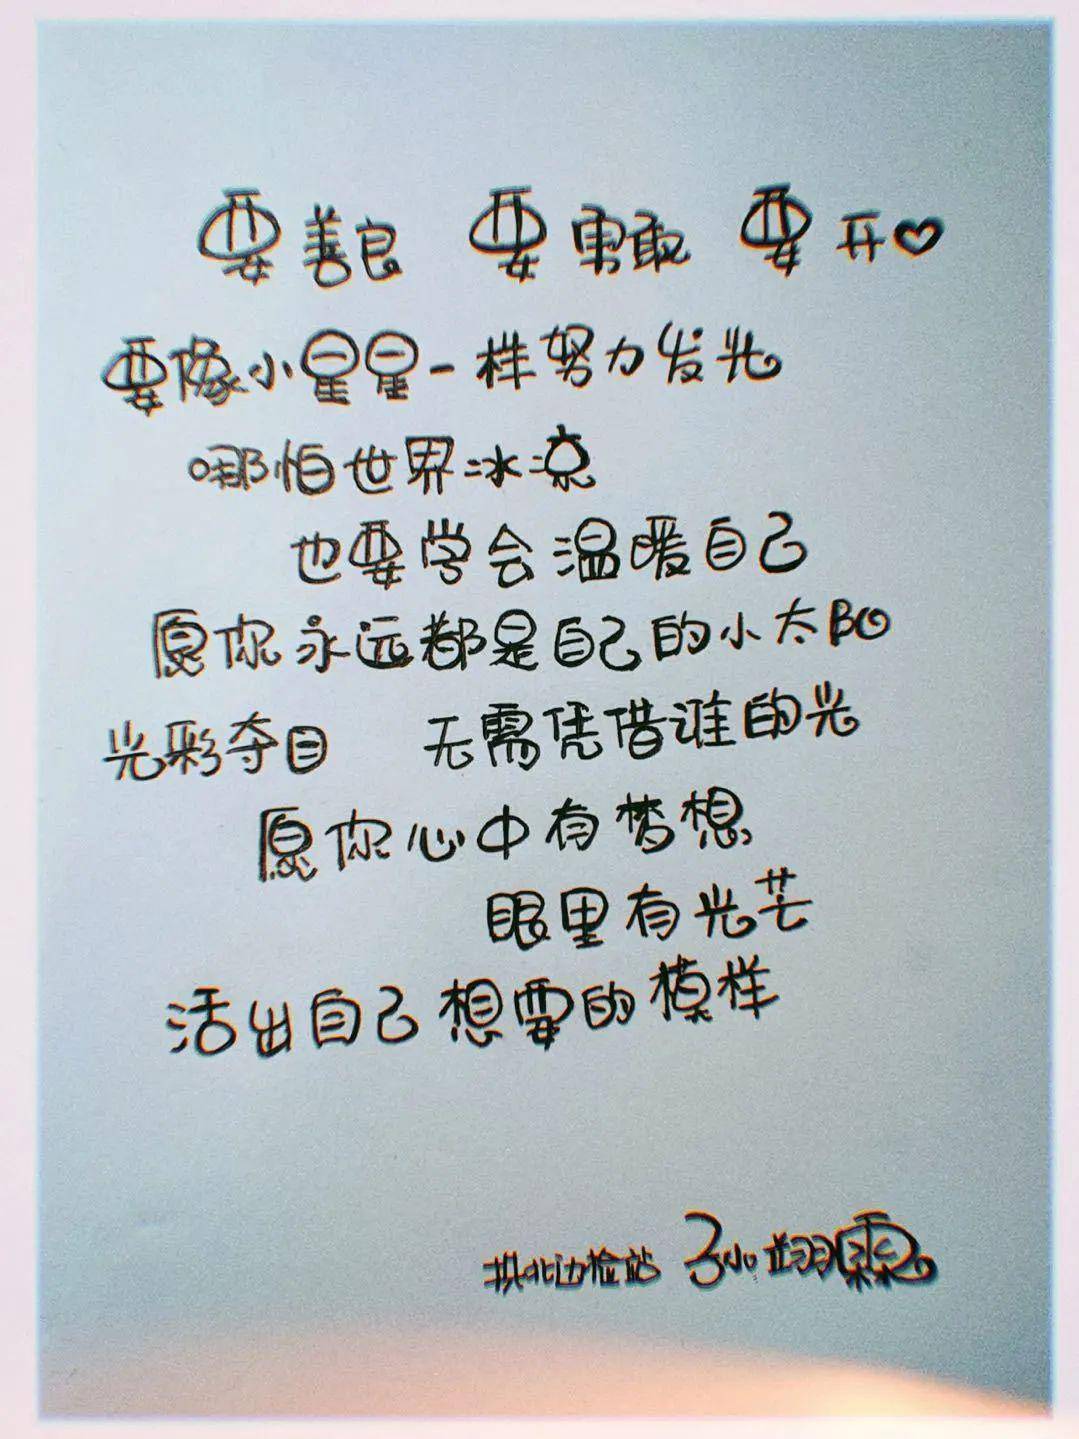 要善良 要勇敢 要开♡
要像小星星一样努力发光
哪怕世界冰凉
也要学会温暖自己
愿你永远都是自己的小太阳
光彩夺目 无需凭借谁的光
愿你心中有梦想
眼里有光芒
活出自己想要的模样
拱北边检站 孙翊